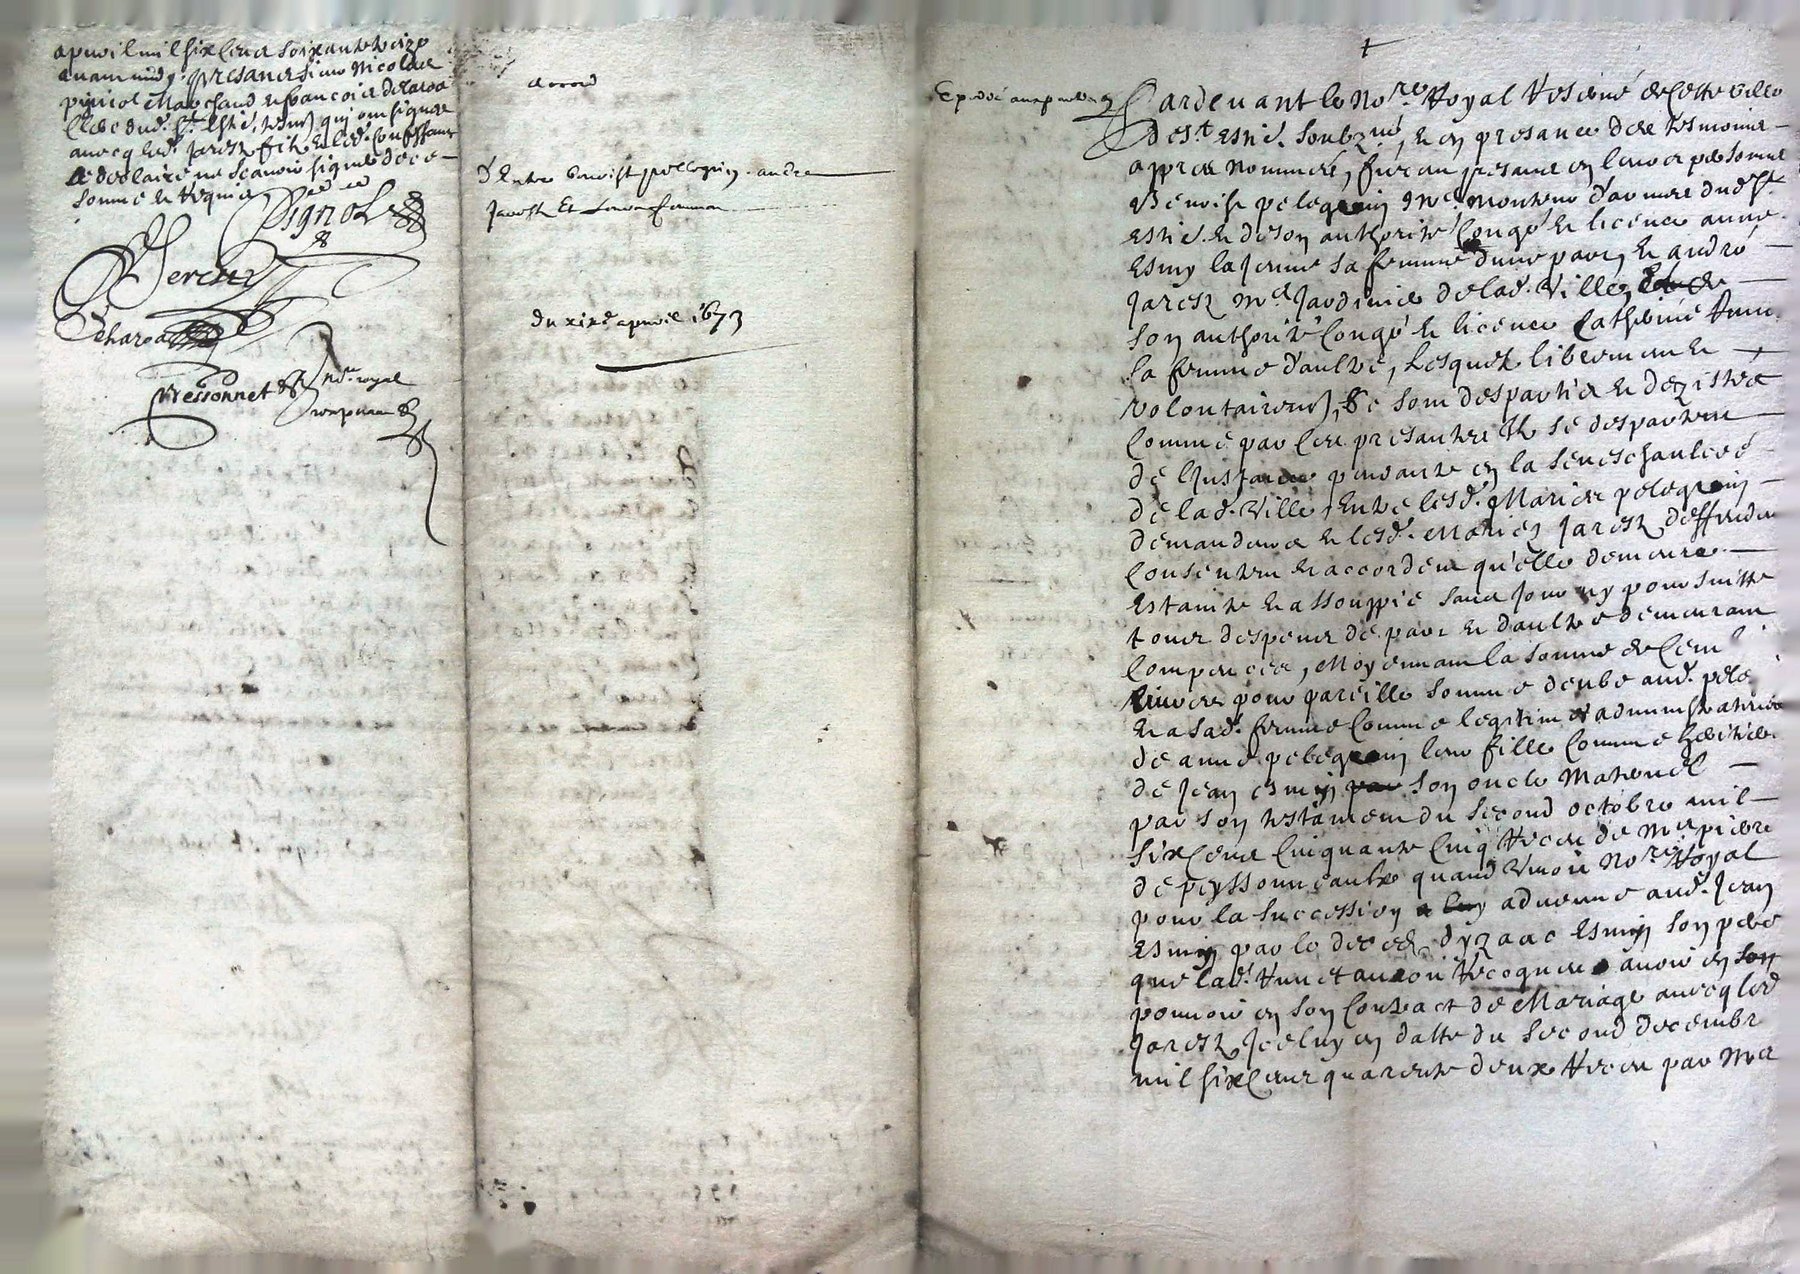 apvril mil six cens soixante treize
avant midy. presans sieur Nicolas
pignol Marchand et francois delaroa
clerc dud. St Estie. tesmoins qui ont signe
avecq led. Jaresz fils et led. confessant
a declaire ne scavoir signer de ce
somme et requis
Pignol
Jercin
Techara
Bessonnet
no.re royal
accord
d'Entre benoist pellegrin. andre
Jarosz et leurs femmes
du xixe apvril 1673
Expedié aux parties
Pardevant le No.re Royal Reservé de cette ville
de St Estie. soubz.né, et en presance des tesmoins
appres nommés, furent presans en leurs personne
Benoist pelegrin Me monteur d'armure dud. St
Estie. et de son authorité congé et licence anne
Esmy la jeune sa femme d'une part, et andré
Jaresz Me Jardinier de lad. ville, et de
son authorité congé et licence Catherine
sa femme d'aultre, Lesquelz liberement et
volontairement, se sont despartis et dezistés
comme par ces presantes ils se despartent
de l'Instance pendante en la seneschaulcée
de lad. ville, Entre lesd. Mariés pelegrin
demandeurs et lesd. Mariez Jaresz deffendeurs
consentent et accordent qu'elle demeure
estainte et assouppie sans jour ny poursuitte
tous despens de part et d'aultre demeurant
compencés, Moyennant la somme de cent
livres pour pareille somme deube aud. pele.
et a sad. femme comme legitime administratrice
de anne pelegrin leur fille comme heritiere
de Jean Esmy son oncle maternel
par son testament du second octobre mil
six cens cinquante cinq receu de Me pierre
de peyssonneaulx quand vivoit No.re Royal
pour la succession advenue aud. Jean
Esmy par le deces d'yzaac Esmy son pere
que lad. auroit recogneu avoir en son
pouvoir en son contract de Mariage avecq led.
Jaresz, Jceluy en datte du second decembre
mil six cens quarente deux receu par Me